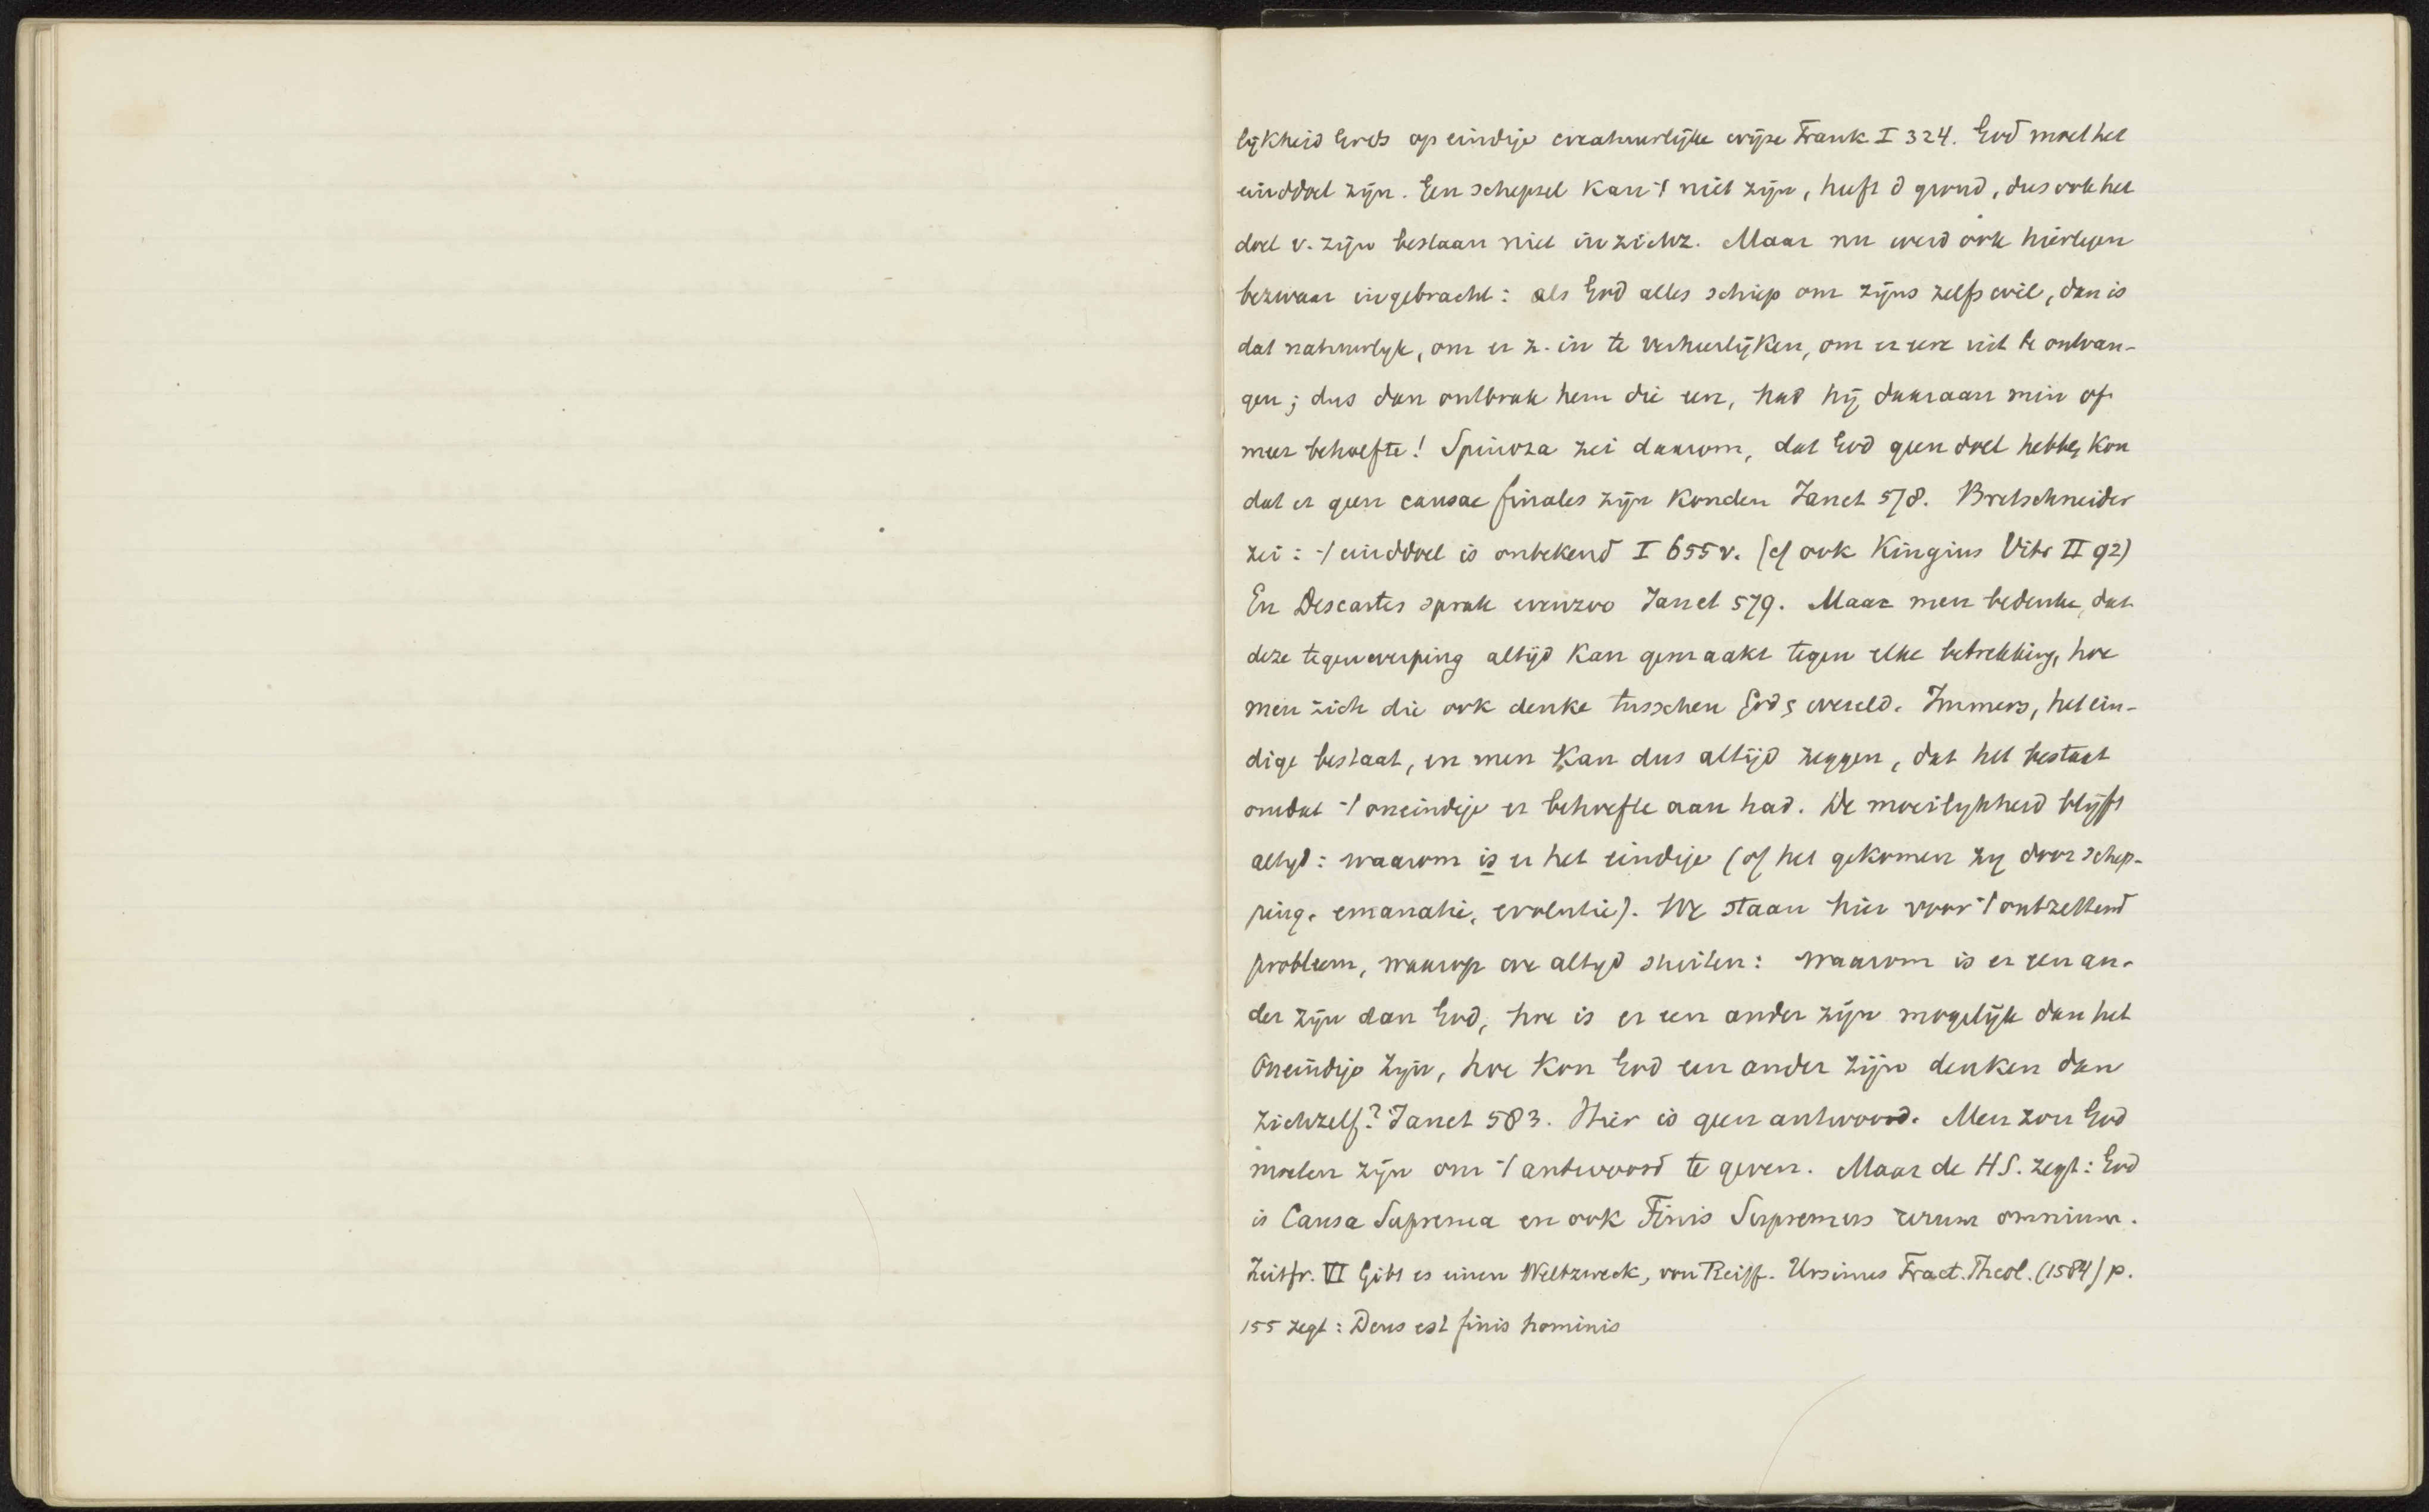 lijkheid Gods op eindige creatuurlijke wijze Frank I 324. God moet het
einddoel zijn. Een schepsel kan 't niet zijn, heeft d grond, dus ook het
doel v. zijn bestaan niet in zichz. Maar nu werd ook hiertegen
bezwaar ingebracht: als God alles schiep om zijns zelfs wil, dan is
dat natuurlyk, om er z. in te verheerlijken, om er eere uit te ontvan-
gen; dus dan ontbrak hem die eer, had hij daaraan min of
meer behoefte! Spinoza zei daarom, dat God geen doel hebben kon
dat er geen causae finales zijn konden Janet 578. Bretschneider
zei: 't einddoel is onbekend I 655 v. (cf ook Kingius Vitr II 92)
En Descartes sprak evenzoo Janet 579. Maar men bedenke, dat
deze tegenwerping altijd kan gemaakt tegen elke betrekking, hoe
men zich die ook denke tusschen God en wereld. Immers, het ein-
dige bestaat, en men kan dus altijd zeggen, dat het bestaat
omdat 't oneindige er behoefte aan had. De moeilykheid blijft
altyd: waarom is er het eindige (of het gekomen zy door schep-
ping, emanatie, evolutie). We staan hier voor 't ontzettend
probleem, waarop we altyd stuiten: waarom is er een an-
der zijn dan God, hoe is er een ander zijn mogelijk dan het
Oneindige zyn, hoe kon God een ander zijn denken dan
zichzelf? Janet 583. Hier is geen antwoord. Men zou God
moeten zijn om 't antwoord te geven. Maar de HS. zegt: God
is Causa Suprema en ook Finis Supremus rerum omnium.
Zeitfr. VI Gibt es einen Weltzweck, von Reiff. Ursinus Tract. Theol. (1584) p.
155 zegt: Deus est finis hominis